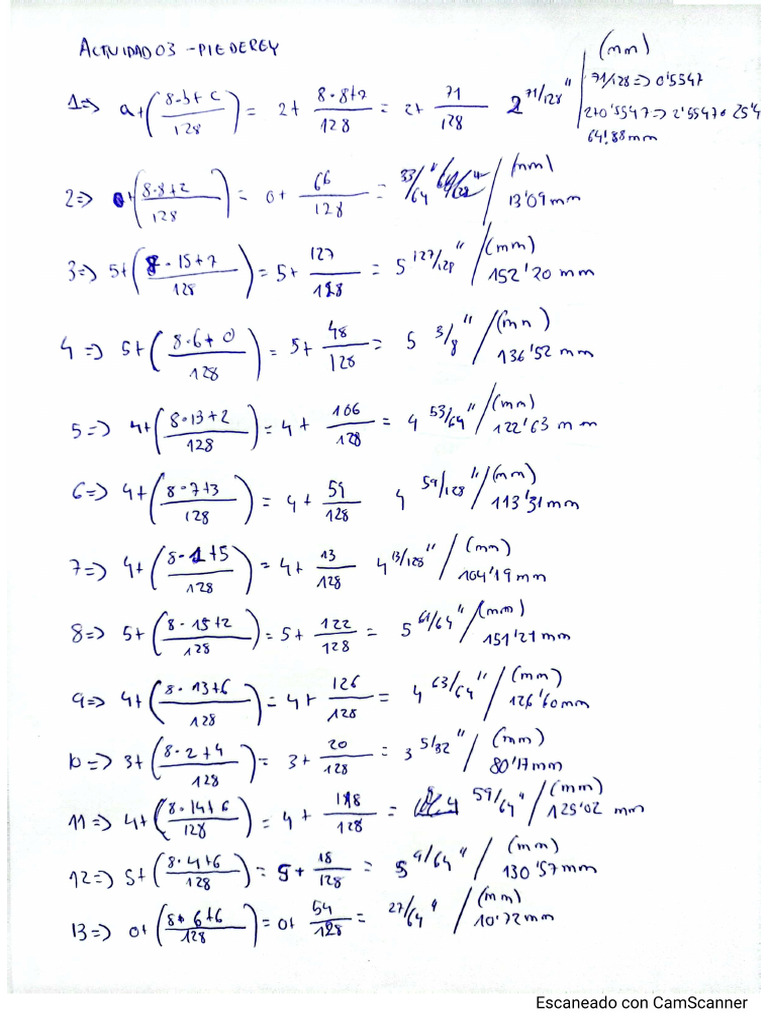 ACTIVIDAD 03 - PIE DE REY
1=> a+(8·b+c/128) = 2+ 8·8+7/128 = 2+ 71/128 2 71/128" / (mm) 71/128 => 0'5547 2+0'5547 => 2'5547·25'4 64'88mm
2=> 0+(8·8+2/128) = 0+ 66/128 = 33/64" / (mm) 13'09mm
3=> 5+(8·15+7/128) = 5+ 127/128 = 5 127/128" / (mm) 152'20 mm
4=> 5+(8·6+0/128) = 5+ 48/128 = 5 3/8" / (mm) 136'52 mm
5=> 4+(8·13+2/128) = 4+ 106/128 = 4 53/64" / (mm) 122'63 mm
6=> 4+(8·7+3/128) = 4+ 59/128 4 59/128" / (mm) 113'31mm
7=> 4+(8·1+5/128) = 4+ 13/128 4 13/128" / (mm) 104'19mm
8=> 5+(8·15+2/128) = 5+ 122/128 = 5 61/64" / (mm) 151'21mm
9=> 4+(8·13+6/128) = 4+ 126/128 = 4 63/64" / (mm) 126'60mm
10=> 3+(8·2+4/128) = 3+ 20/128 = 3 5/32" / (mm) 80'17mm
11=> 4+(8·14+6/128) = 4+ 118/128 = 4 59/64" / (mm) 125'02 mm
12=> 5+(8·4+6/128) = 5+ 18/128 = 5 9/64" / (mm) 130'57mm
13=> 0+(8·6+6/128) = 0+ 54/128 = 27/64" / (mm) 10'72mm
Escaneado con CamScanner